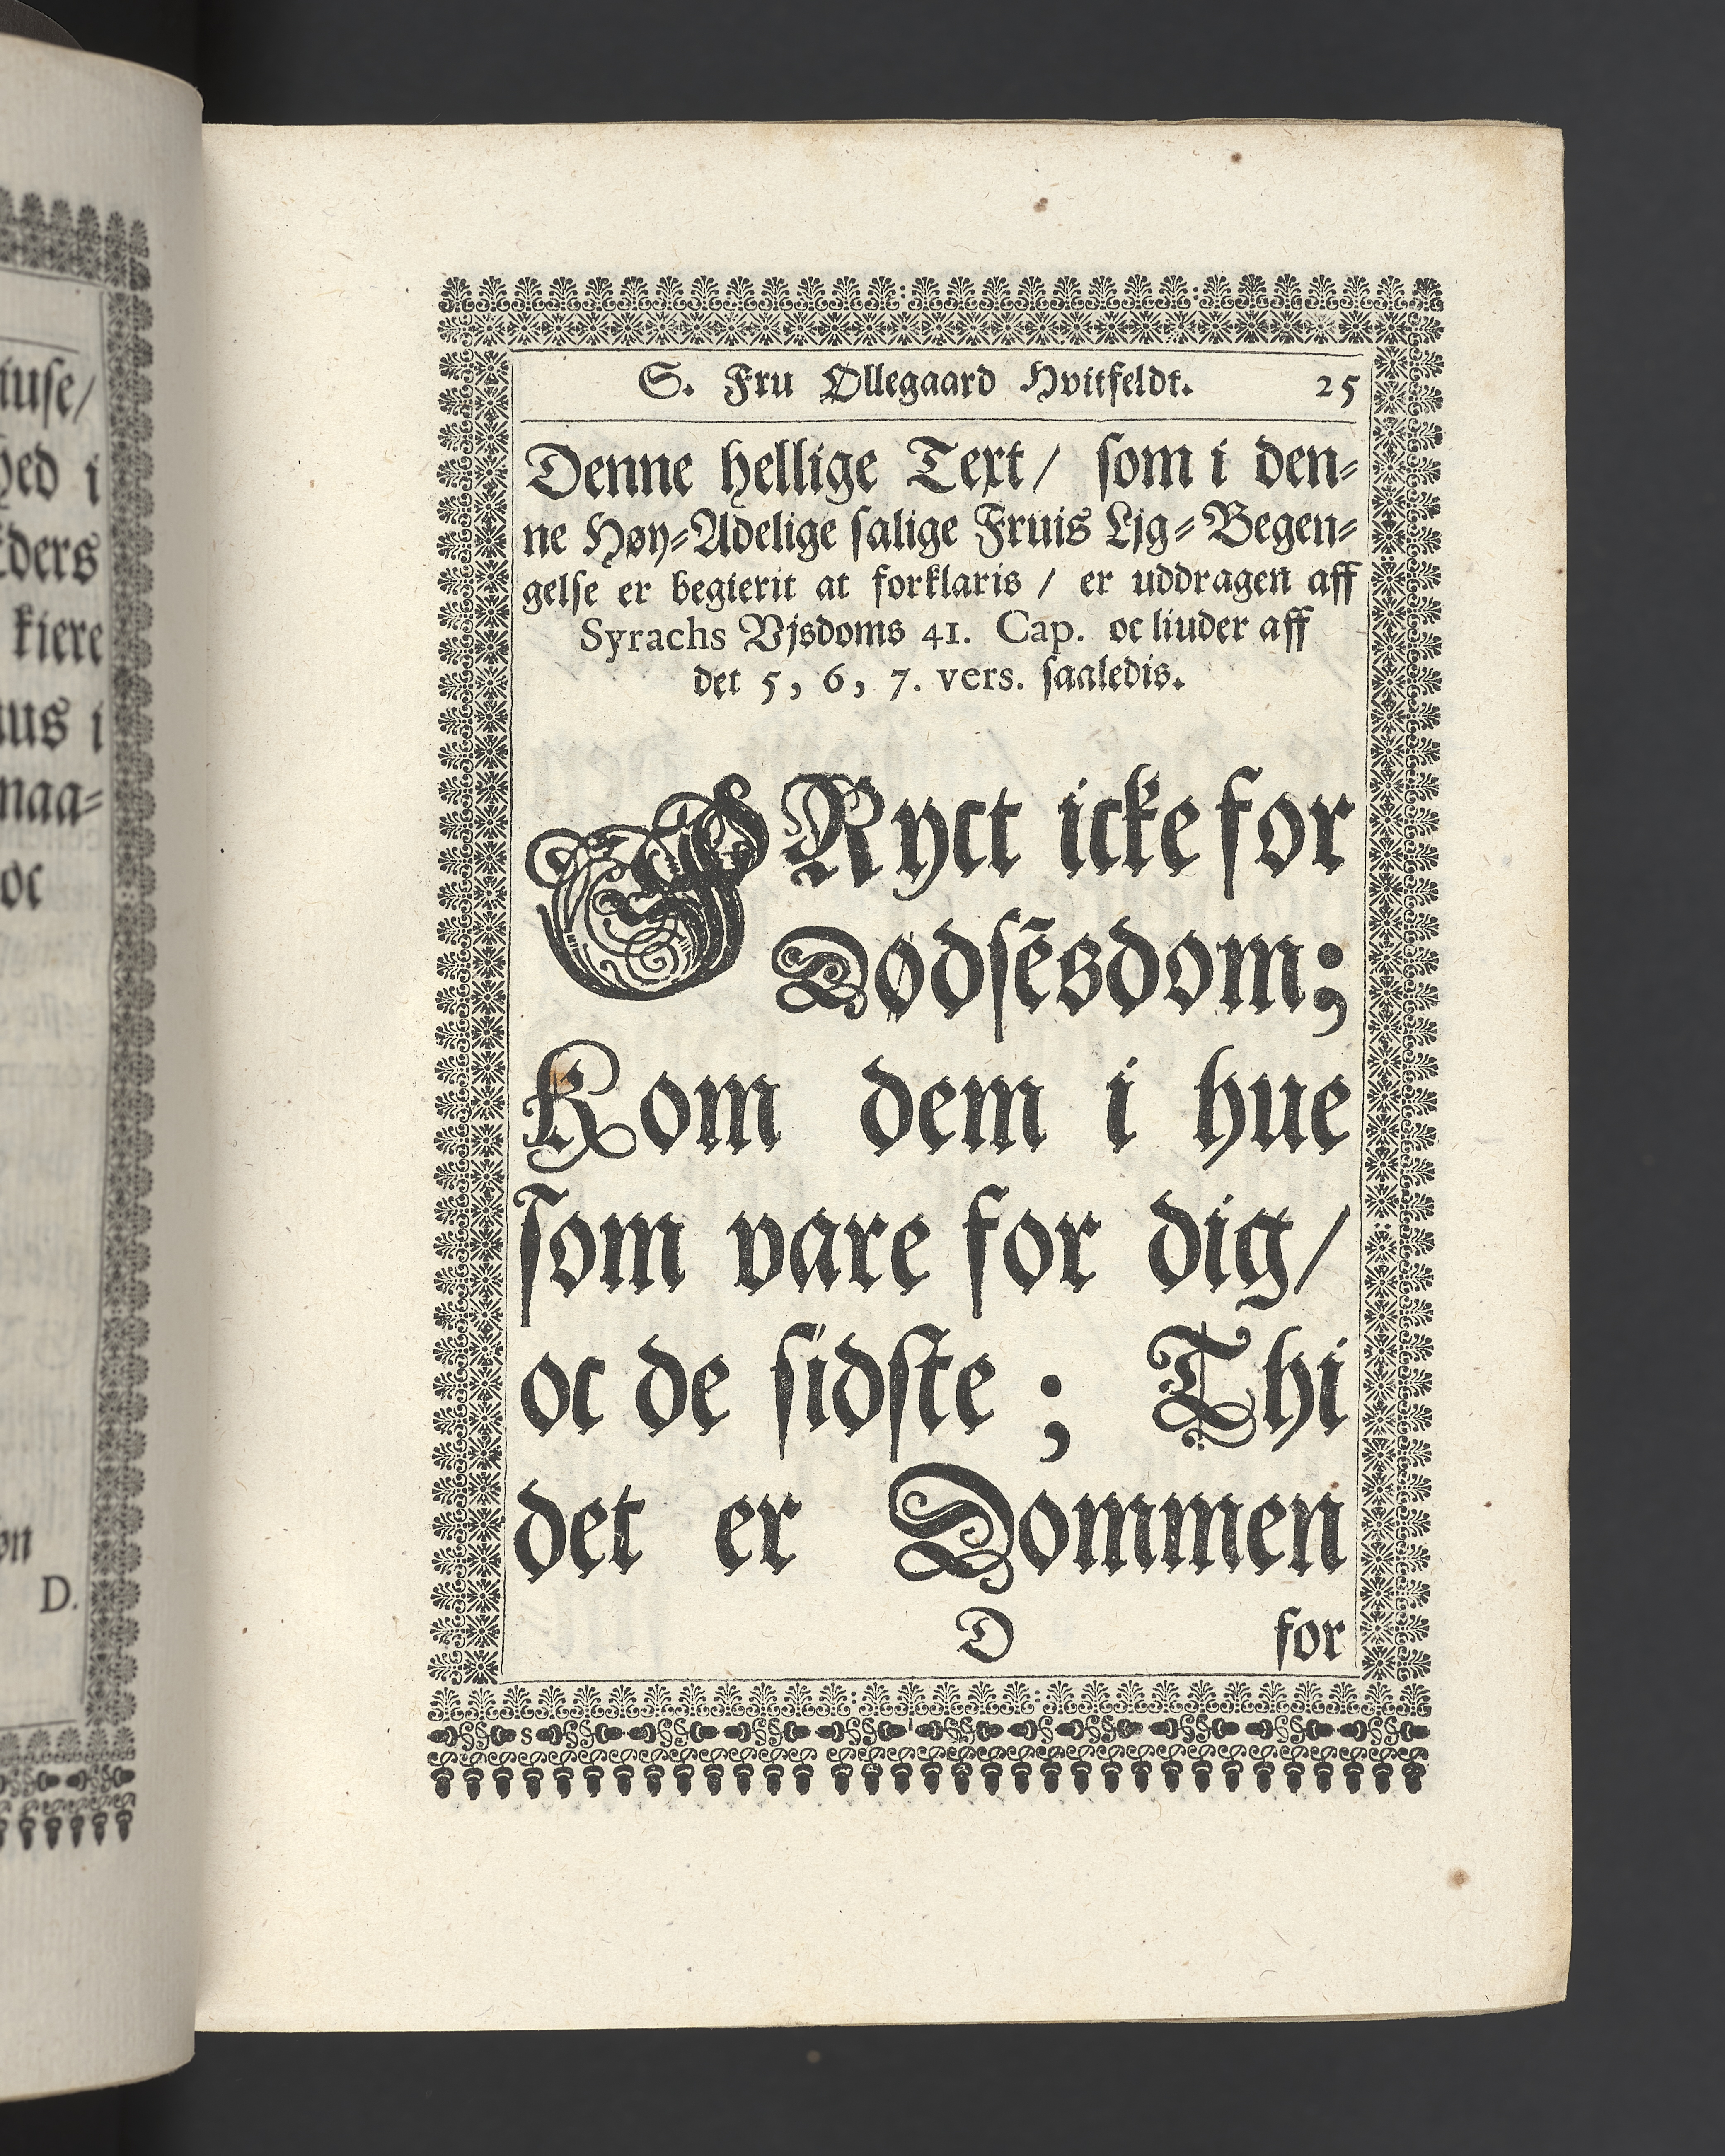 iuse/
hed i
kders
kiere
uus i
maa⸗
oc
on
D.
S. Fru Øllegaard Hvitfeldt. 25
Denne hellige Text/ som i den⸗
ne Høy⸗Adelige salige Fruis Ljg⸗Begen⸗
gelse er begierit at forklaris / er uddragen aff
Syrachs Vjsdoms 41. Cap. oc liuder aff
det 5, 6, 7. vers. saaledis.
FRyct icke for
Dødsẽsdom;
Kom dem i hue
som vare for dig/
oc de sidste ; Thi
det er Dommen
D for